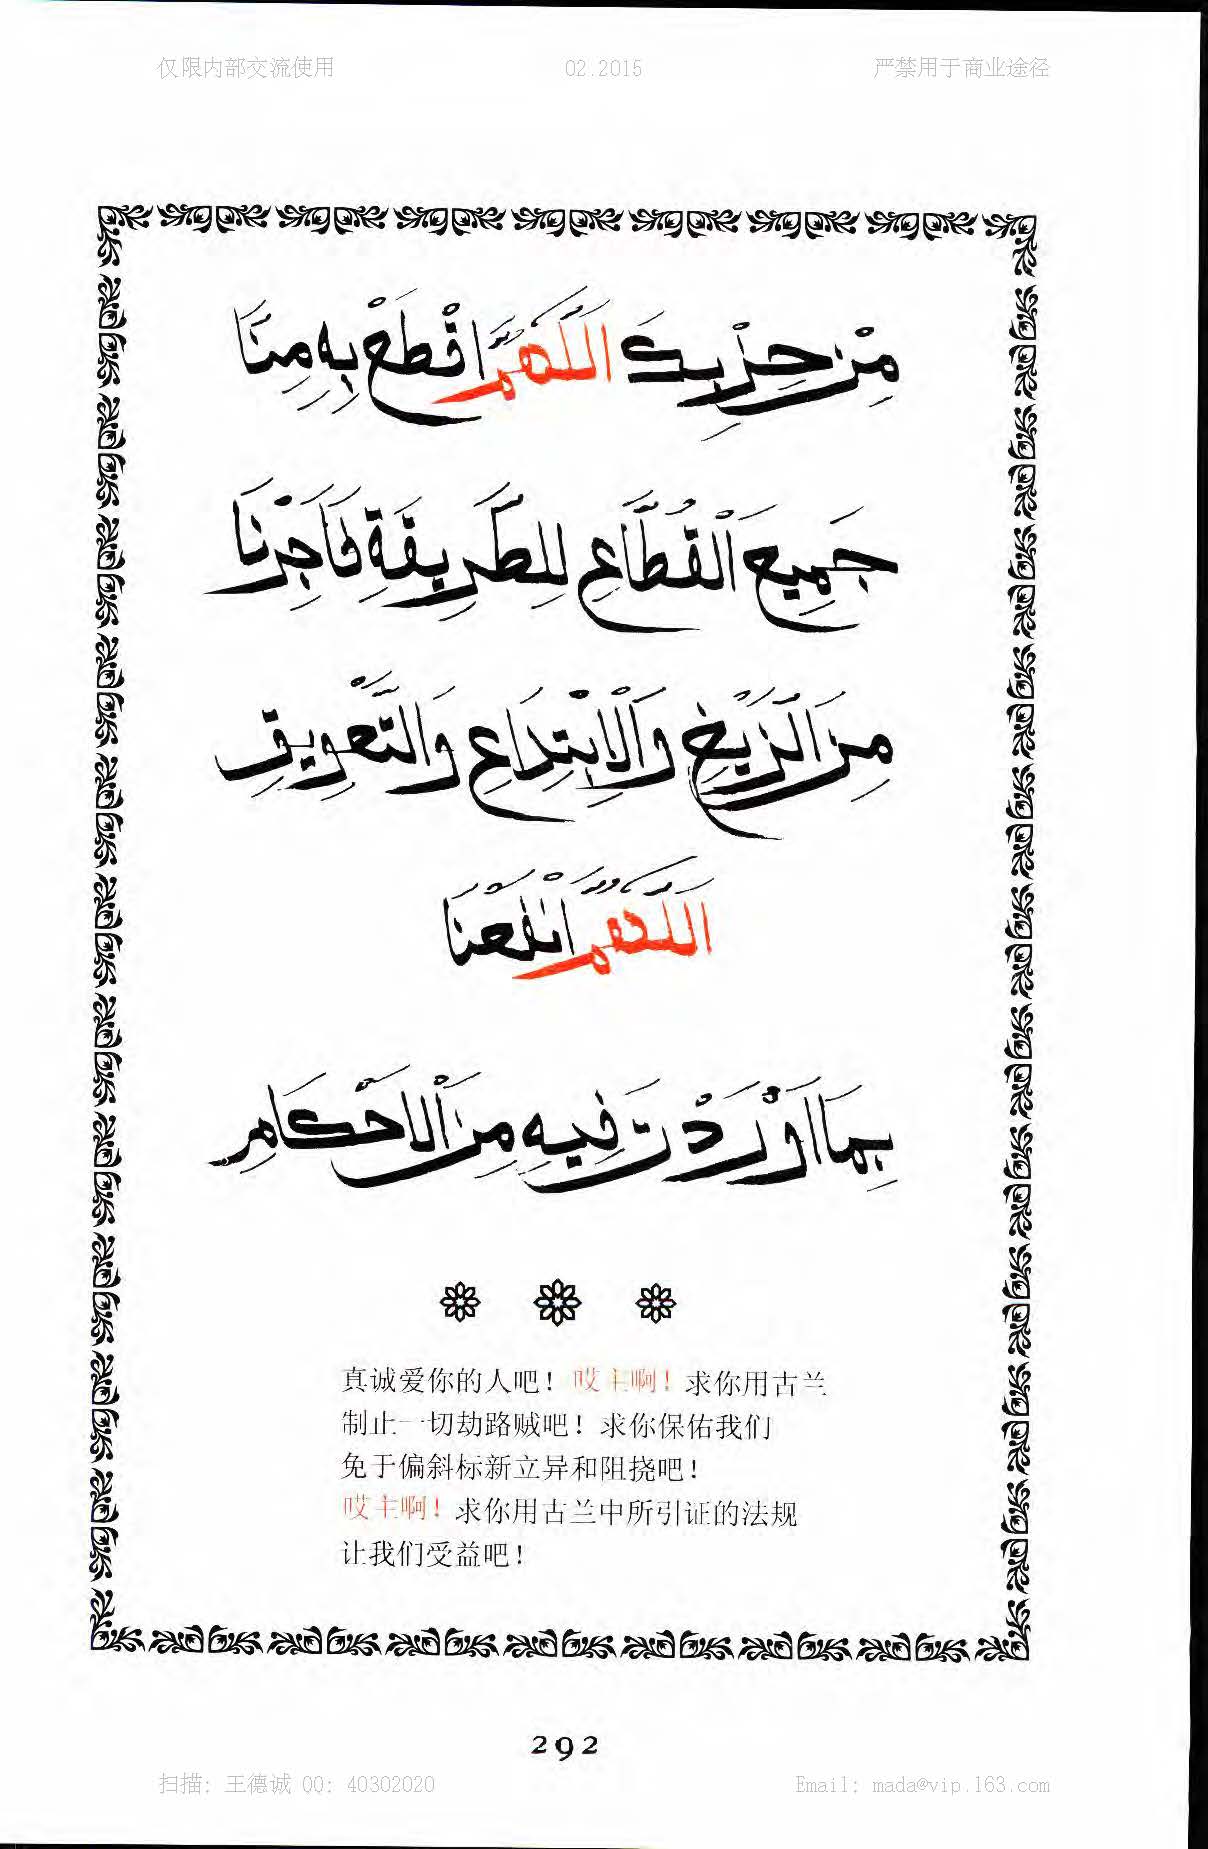 仅限内部交流使用 02.2015 严禁用于商业途径
مِنْ حِزْبِكَ اَللَّهُمَّ اقْطَعْ بِهِ مِنَّا
جَمِيعَ الْقُطَّاعِ لِلطَّرِيقَةِ فَاَجِرْنَا
مِنَ الزَّيْغِ وَالْاِبْتِدَاعِ وَالتَّعْوِيقِ
اَللَّهُمَّ انْفَعْنَا
بِمَا اَوْرَدْتَ فِيهِ مِنَ الْاَحْكَامِ
真诚爱你的人吧！哎主啊！求你用古兰
制止一切劫路贼吧！求你保佑我们
免于偏斜标新立异和阻挠吧！
哎主啊！求你用古兰中所引证的法规
让我们受益吧！
292
扫描: 王德诚 QQ: 40302020 Email: mada@vip.163.com